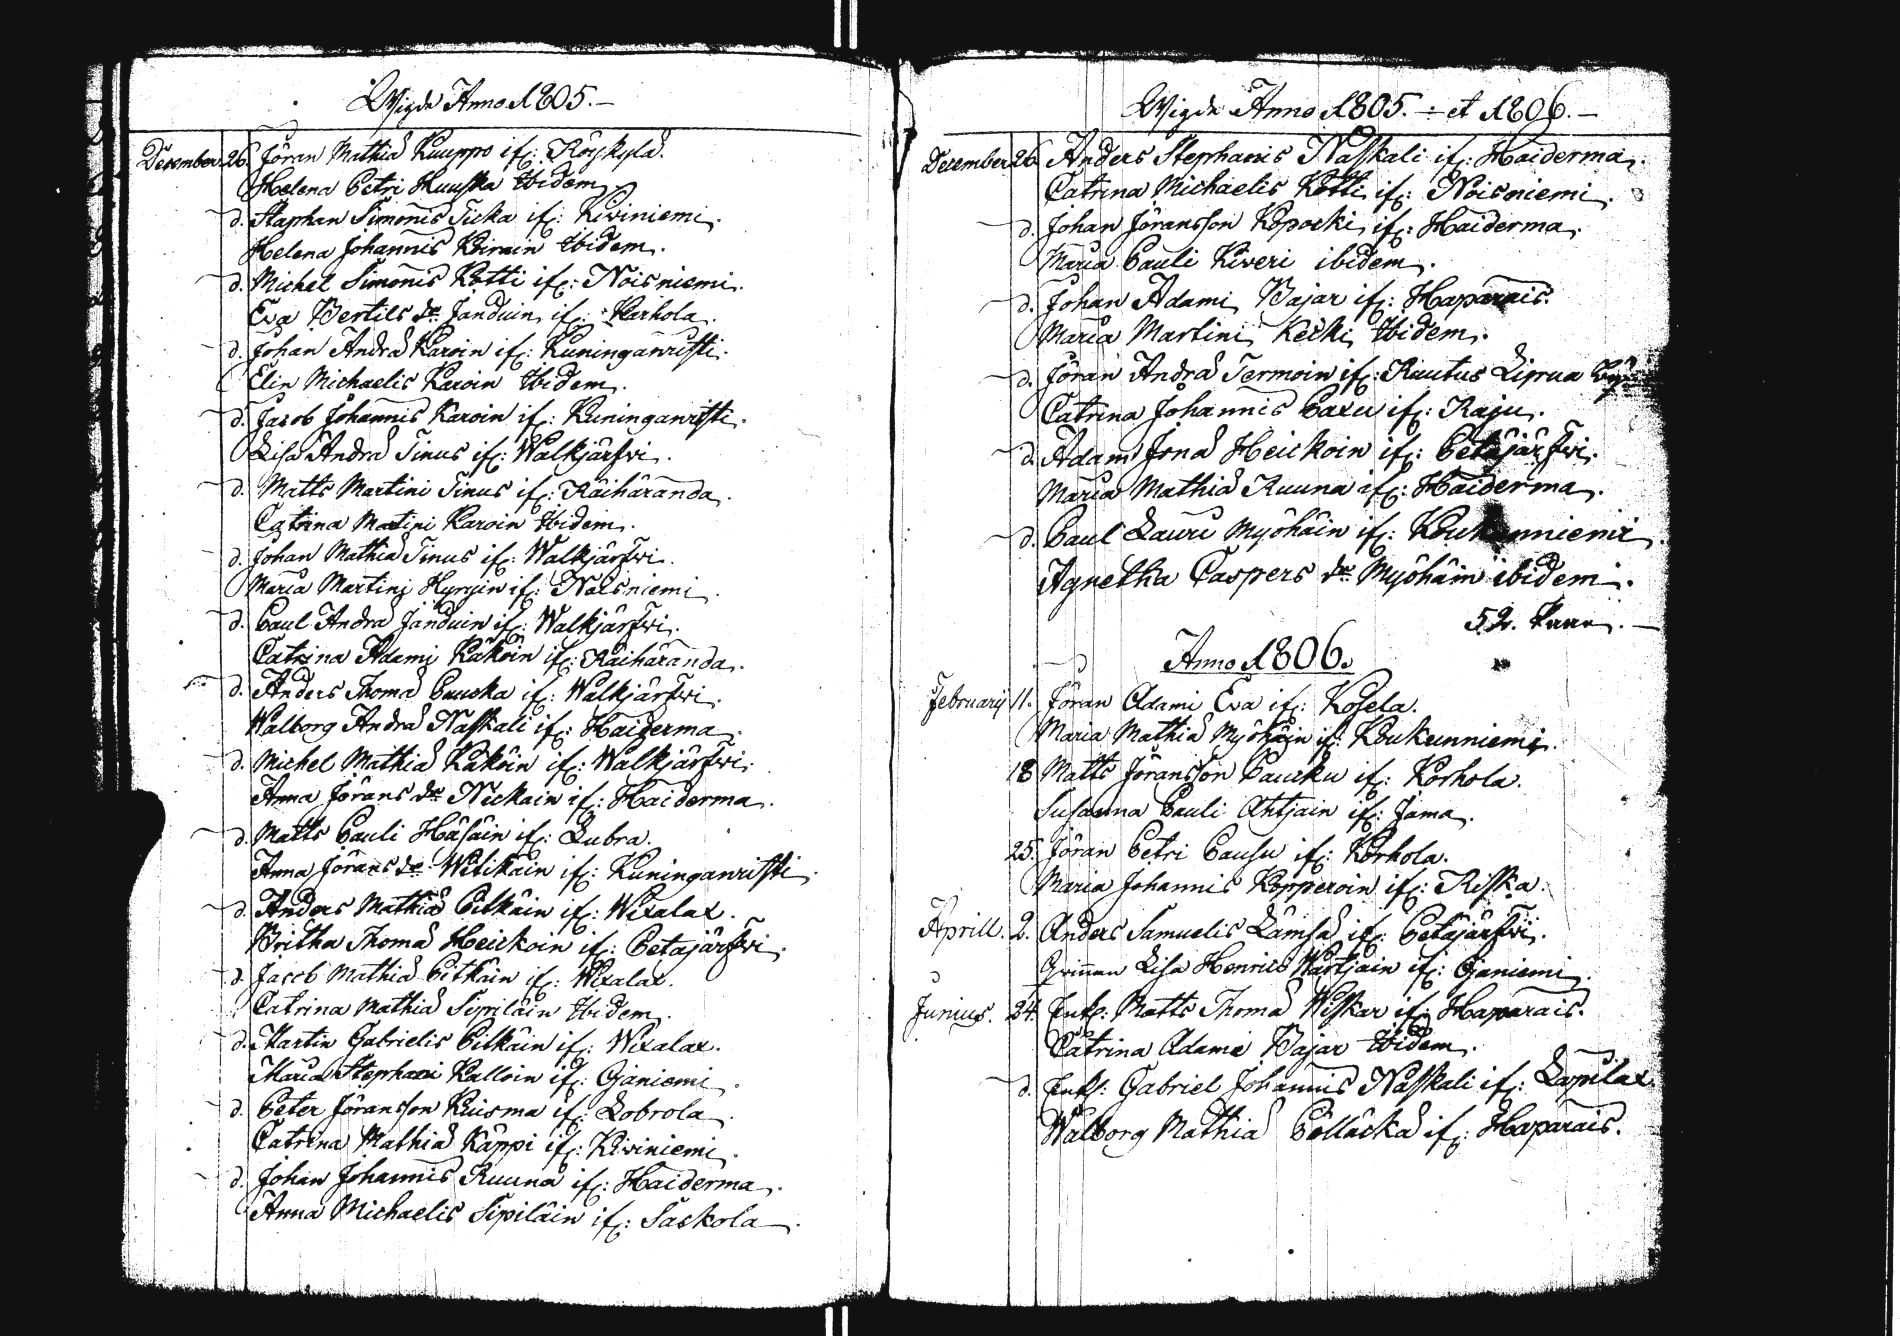 Wigde Anno 1805.
December 26. Jöran Mathiæ Kuuppo if: Röykylä.
Helena Petri Huuska Ibidem
d. Staphan Simonis Ticka if: Kiviniemi.
Helena Johannis Koirain Ibidem.
d. Michel Simonis Kotti if: Noisniemi.
Eva Bertils dr. Janduin if: Karhola.
d. Johan Andræ Karoin if: Kuninganristi.
Elin Michaelis Karoin Ibidem.
d. Jacob Johannis Karoin if: Kuninganristi.
Lisa Andræ Tinus if: Walkjärfwi.
d. Matts Martini Tinus if: Räihäranda.
Catrina Matini Karoin Ibidem.
d. Johan Mathiæ Tinus if: Walkjärfwi.
Maria Martini Hyryin if: Noisniemi.
d. Paul Andræ Janduin if: Walkjärfwi.
Catrina Adami Käköin if: Räihäranda.
d. Anders Thomæ Pauska if: Walkjärfwi.
Walborg Andræ Naskali if: Haiderma.
d. Michel Mathiæ Käköin if: Walkjärfwi.
Anna Jörans dr. Nickain if: Haiderma.
d. Matts Pauli Häsäin if: Lubra.
Anna Jörans dr. Wilikain if: Kuninganristi.
d. Anders Mathiæ Pitkäin if: Wixalax.
Britha Thomæ Heickoin if: Petäjärfwi.
d. Jacob Mathiæ Pitkäin if: Wixalax.
Catrina Mathiæ Sipiläin Ibidem.
d. Martin Gabrielis Pitkäin if: Wixalax.
Maria Stephani Kalloin if: Ojaniemi.
d. Peter Jöransson Kuisma if: Lobrola.
Catrina Mathiæ Käppi if: Kiviniemi.
d. Johan Johannis Ruuna if: Haiderma.
Anna Michaelis Sipiläin if: Sackola.
Wigde Anno 1805. et 1806.
December 26. Anders Stephanis Naskali if: Haiderma.
Catrina Michaelis Kotti if: Noisniemi.
d. Johan Jöransson Kopocki if: Haiderma.
Maria Pauli Kiveri ibidem.
d. Johan Adami Bajar if: Haparais.
Maria Martini Kecki Ibidem.
d. Jöran Andræ Termoin if: Rautus Liprua By
Catrina Johannis Paxu if: Raju.
d. Adam Jonæ Heickoin if: Petäjärfwi.
Maria Mathiæ Ruuna if: Haiderma.
d. Paul Lauri Myöhäin if: Koukunniemi.
Agnetha Caspers dr. Myöhäin ibidem.
52. Paar.
Anno 1806.
February 11. Jöran Adami Eva if: Kosela.
Maria Mathiæ Myöhäin if: Koukunniemi.
18 Matts Jöransson Paucku if: Korhola.
Susanna Pauli Ahtjain if: Jama.
25. Jöran Petri Pausu if: Korhola.
Maria Johannis Kopperoin if: Riska.
Aprill. 2. Anders Samuelis Lämsä if: Petäjärfwi.
Qvinnan Lisa Henrics Wartjain if: Ojaniemi.
Junius. 24. Enkl: Matts Thomæ Wiskar if: Haparais.
Catrina Adami Bajar Ibidem.
d. Enkl: Gabriel Johannis Naskali if: Lapilax.
Walborg Mathiæ Pölläckä if: Haparais.